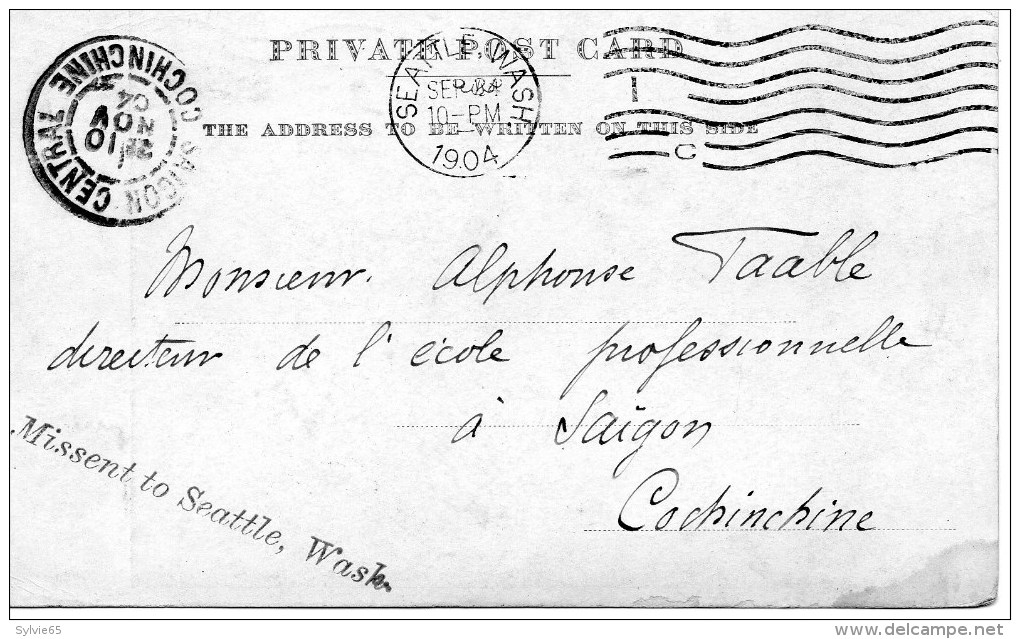 PRIVATE POST CARD
THE ADDRESS TO BE WRITTEN ON THIS SIDE
SAIGON CENTRAL COCHINCHINE
10
NOV
04
SEATTLE, WASH
SEP
10-PM
1904
1
C
Monsieur Alphonse Taable
directeur de l'école professionnelle
à Saïgon
Cochinchine
Missent to Seattle, Wash.
Sylvie65
delcampe.net